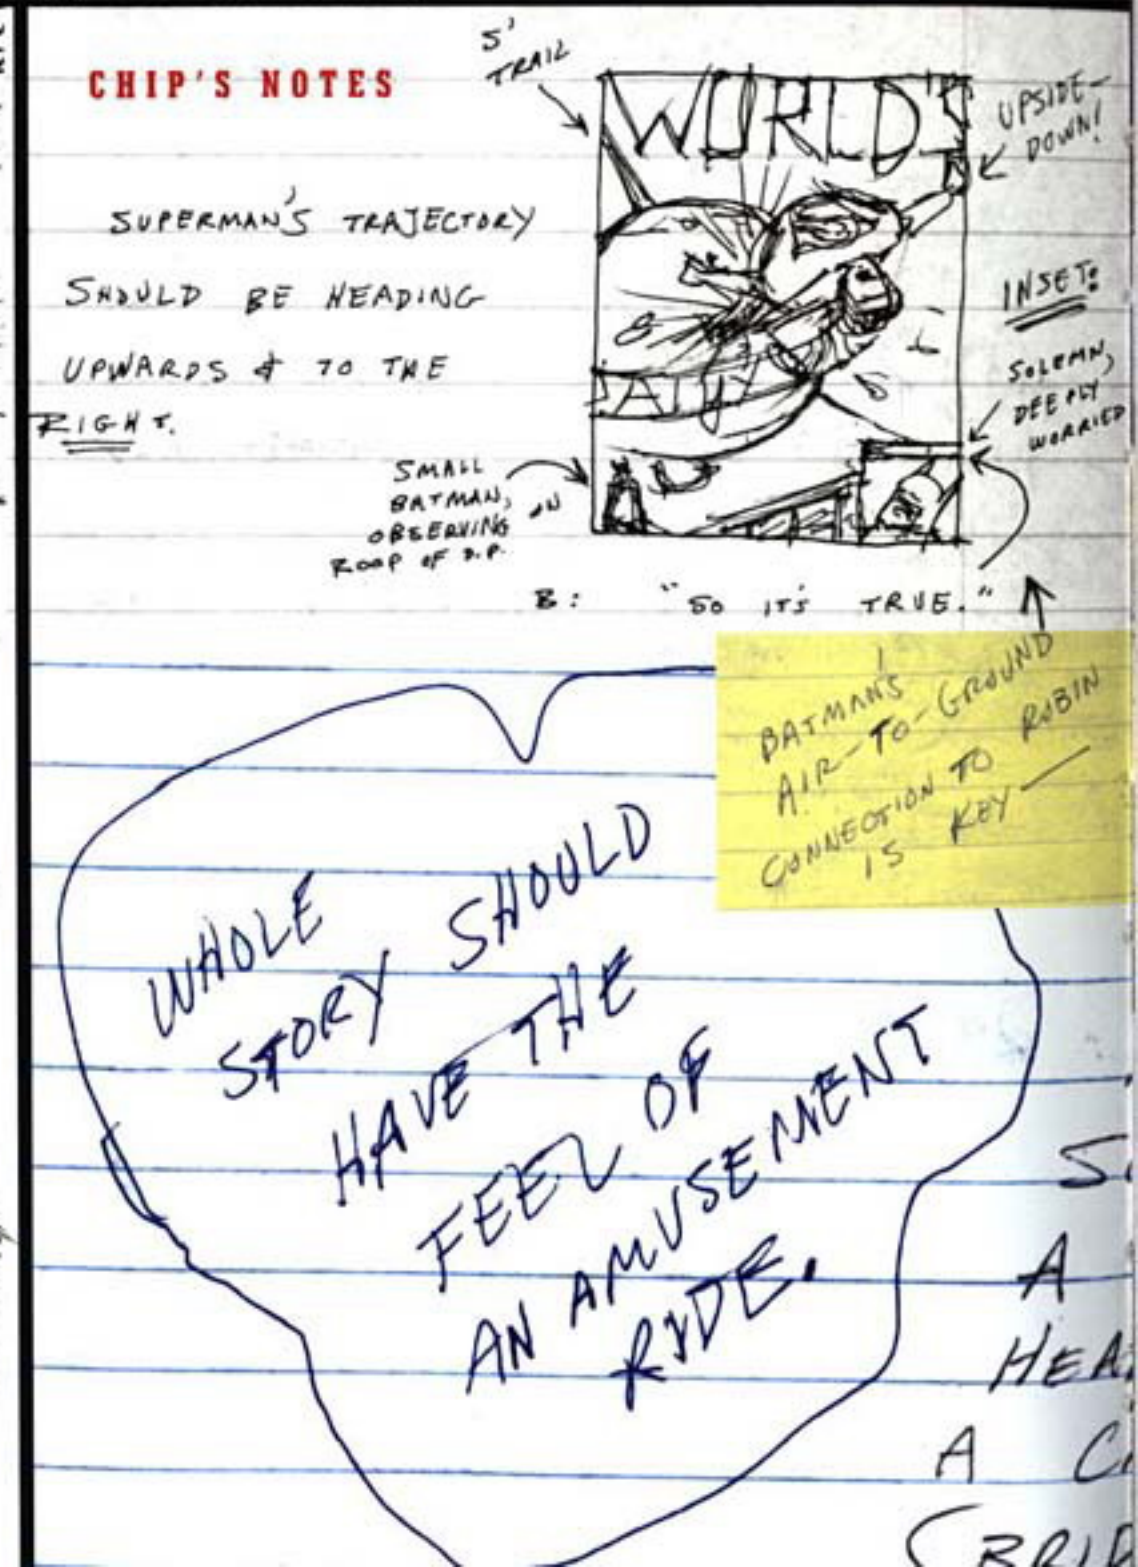 CHIP'S NOTES
S'
TRAIL
WORLD'S
UPSIDE-
DOWN!
SUPERMAN'S TRAJECTORY
SHOULD BE HEADING
UPWARDS & TO THE
RIGHT.
INSET:
SOLEMN,
DEEPLY
WORRIED
DAILY
SMALL
BATMAN,
OBSERVING ON
ROOF OF D.P.
B: "SO IT'S TRUE."
BATMAN'S
AIR-TO-GROUND
CONNECTION TO ROBIN
IS KEY—
WHOLE
STORY SHOULD
HAVE THE
FEEL OF
AN AMUSEMENT
RIDE.
A
HEA
A C